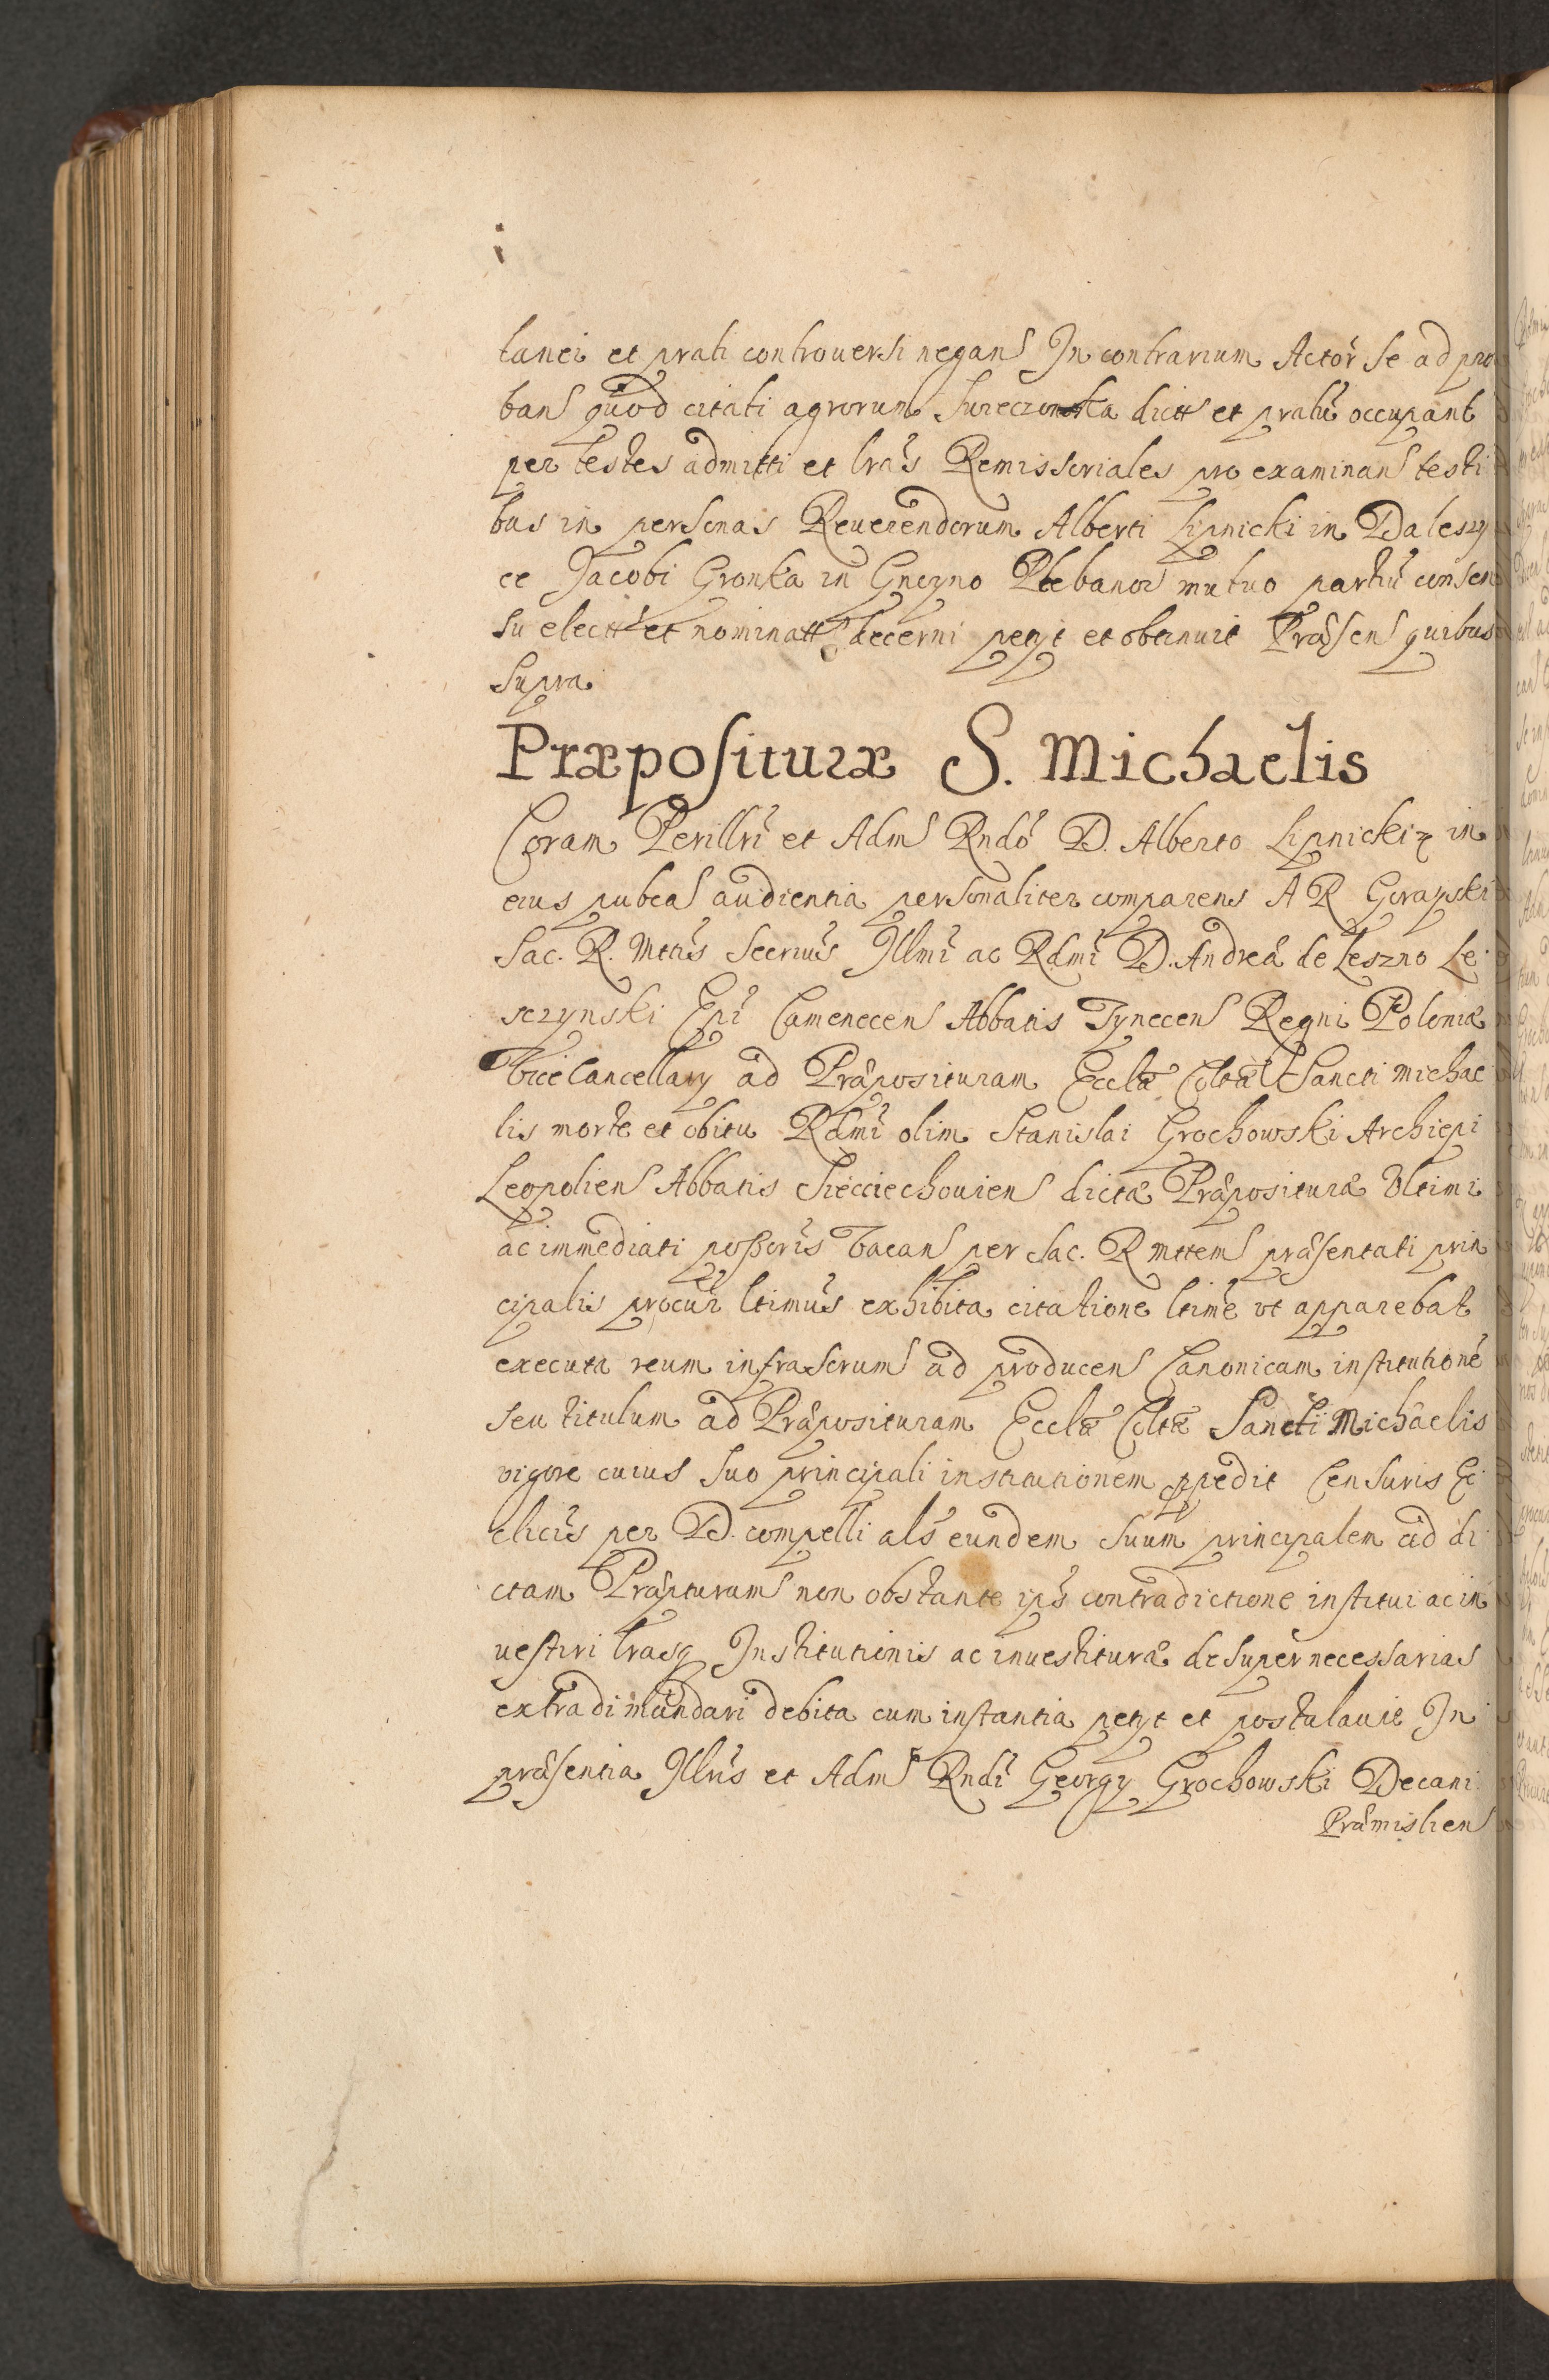 lanei et prati controuersi negans In contrarium Actor se ad pro
bans quod citati agrorum dictt et pratū occupant
per testes admitti et lras Remissoriales pro examinans testi
bus in personas Reuerendorum Alberti Lipnicki in Daleszy
ce Jacobi Gronka in Gnoyno Plebanor mutuo partiū consen
su electt et nominatt decerni petyt et obtinuit Præsens quibus
supra
Præpositura S. Michaelis
Coram Perillri et Adm Rndo D. Alberto Lipnicki in
eius pubca audientia personaliter comparens A R Gorayski
Sac. R. Mttis Secrius Illmi ac Rdmi D. Andreæ de Leszno Le
sczynski Epi Camenecen Abbatis Tynecen Regni Poloniæ
Vice Cancellary ad Præposituram Ecclæ Coltæ Sancti Michae
lis morte et obitu Rdmi olim Stanislai Grochowski Archiepi
Leopolien Abbatis Siecciechouien dictæ Præposituræ Vltimi
ac immediati possoris Vacan per Sac. R mttem præsentati prin
cipalis procur ltimus exhibita citatione ltime vt apparebat
executa reum infrascrum ad producen Canonicam institutionē
seu titulum ad Præposituram Ecclæ Coltæ Sancti Michaelis
vigore cuius suo principali institutionem ppedit Censuris Ec
clicis per D. compelli als eundem suum principalem ad di
ctam Præpturam non obstante ips contradictione institui ac in
uestiri lrasq Institutionis ac inuestituræ desuper necessarias
extradi mandari debita cum instantia petyt et postulauit In
præsentia Illris et Adm Rndi Georgy Grochowski Decani
Præmislien